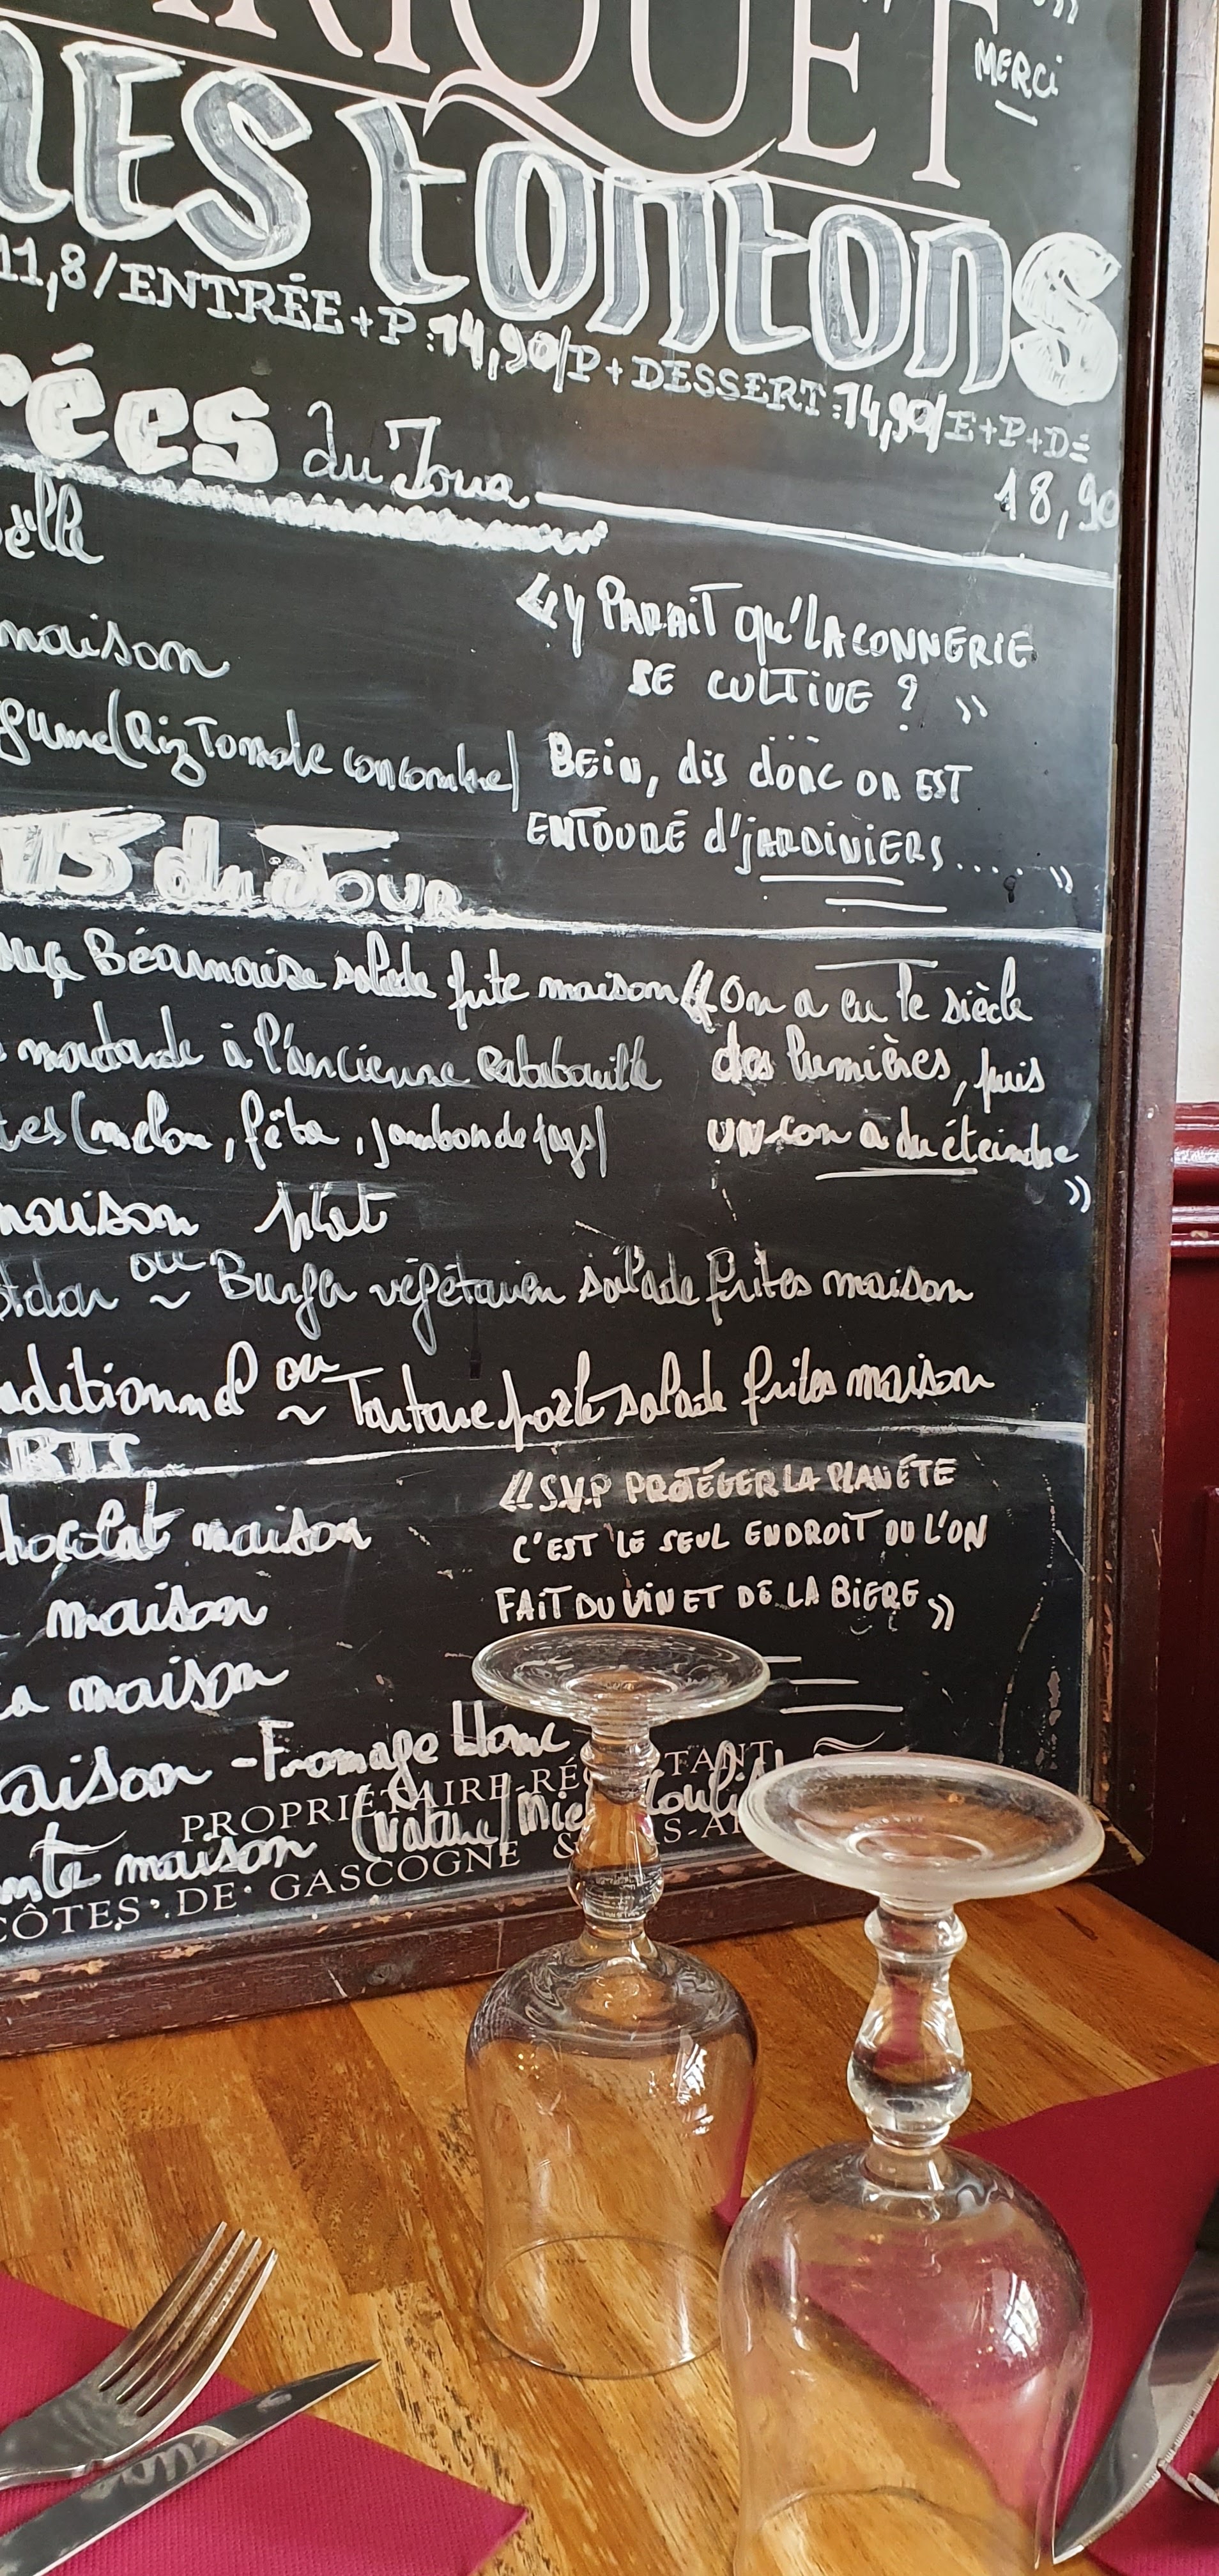 RIQUET
MERCi
MES tontons
11,8/ENTRÉE+P:14,90/P+DESSERT:14,90/E+P+D=
18,90
rées du Jour
maison
(Riz Tomate concombre)
« y PARAiT qu'LA CONNERIE
SE CULTIVE ? »
BEiN, dis donc on EST
ENTOURÉ d'jARDiNiERS.... »
TS du JOUR
Béarnaise salade frite maison
moutarde à l'ancienne Ratatouille
tes (melon, fêta, jambon de pays)
maison plat
ou Burger végétarien salade frites maison
aditionnel ou Tartare poêlé salade frites maison
« On a eu le siècle
des lumières, puis
UN con a du éteindre
»
ERTS
chocolat maison
maison
maison
aison - Fromage blanc
(nature/miel/coulis
nte maison
« S.V.P PROTÉGER LA PLANÉTE
C'EST LE SEUL ENDROIT OU L'ON
FAiT DU ViN ET DE LA BiERE »
PROPRIÉTAIRE-RÉ TANT
CÔTES DE GASCOGNE & AS-A